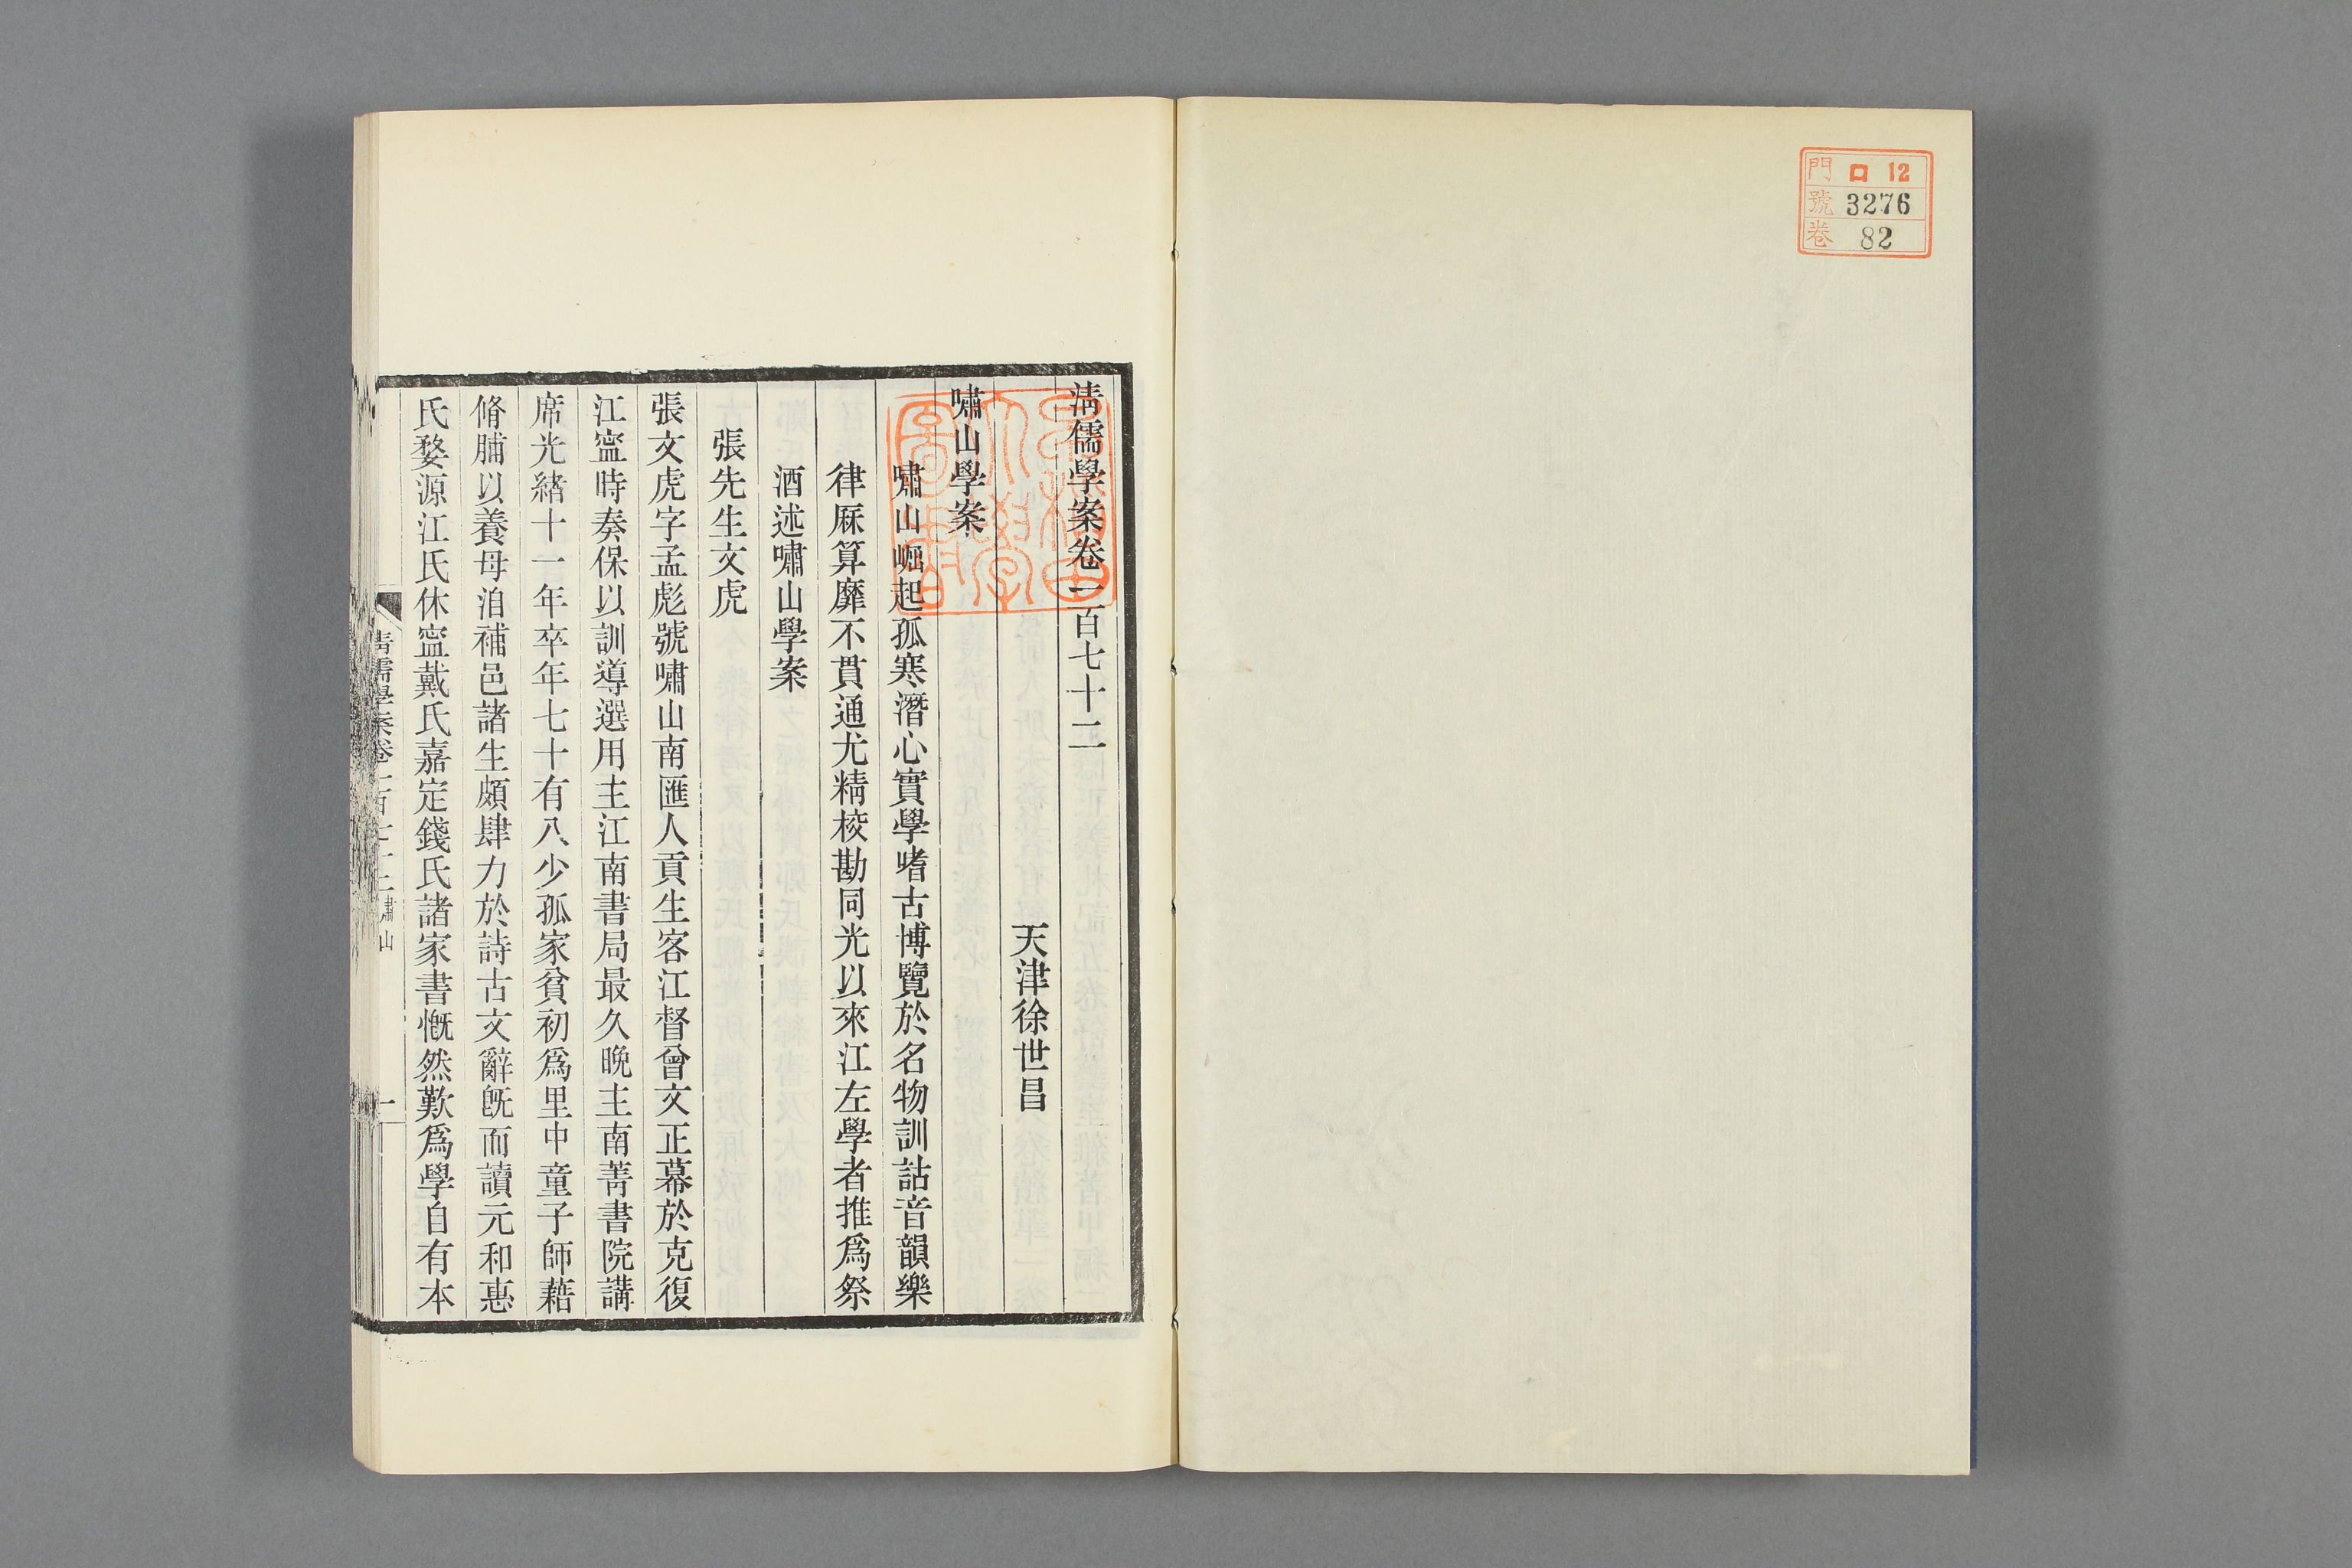 門 ロ 12
號 3276
卷 82
清儒學案卷一百七十二
天津徐世昌
嘯山學案
嘯山崛起孤寒潛心實學嗜古博覽於名物訓詁音韻樂
律厤算靡不貫通尤精校勘同光以來江左學者推爲祭
酒述嘯山學案
張先生文虎
張文虎字孟彪號嘯山南匯人貢生客江督曾文正幕於克復
江寧時奏保以訓導選用主江南書局最久晚主南菁書院講
席光緒十一年卒年七十有八少孤家貧初爲里中童子師藉
脩脯以養母洎補邑諸生頗肆力於詩古文辭旣而讀元和惠
氏婺源江氏休寧戴氏嘉定錢氏諸家書慨然歎爲學自有本
清儒學案卷一百七十二 嘯山 一